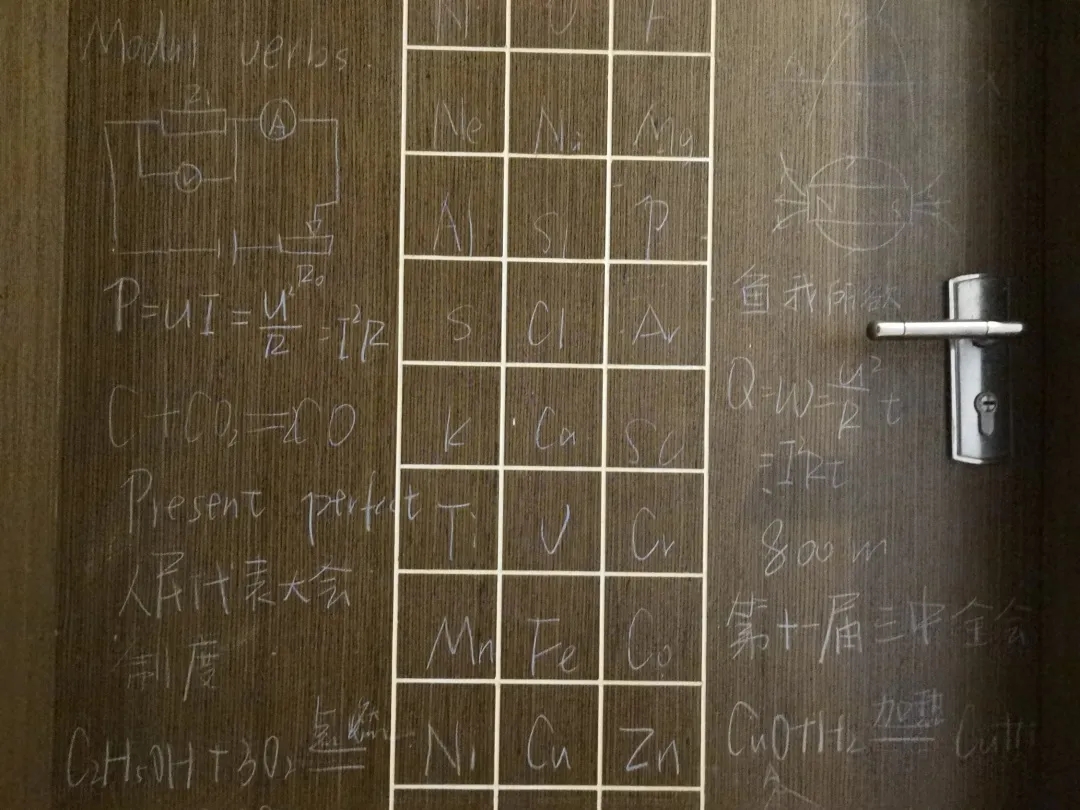 Modal verbs.
A
V
R₀
P=UI=U²/R=I²R
C+CO₂=2CO
Present perfect
人民代表大会
制度
C₂H₅OH+3O₂ 点燃
N O F
Ne Na Mg
Al Si P
S Cl Ar
K Ca Sc
Ti V Cr
Mn Fe Co
Ni Cu Zn
N S
鱼我所欲
Q=W=U²/R t
=I²Rt
800m
第十一届三中全会
CuO+H₂ 加热